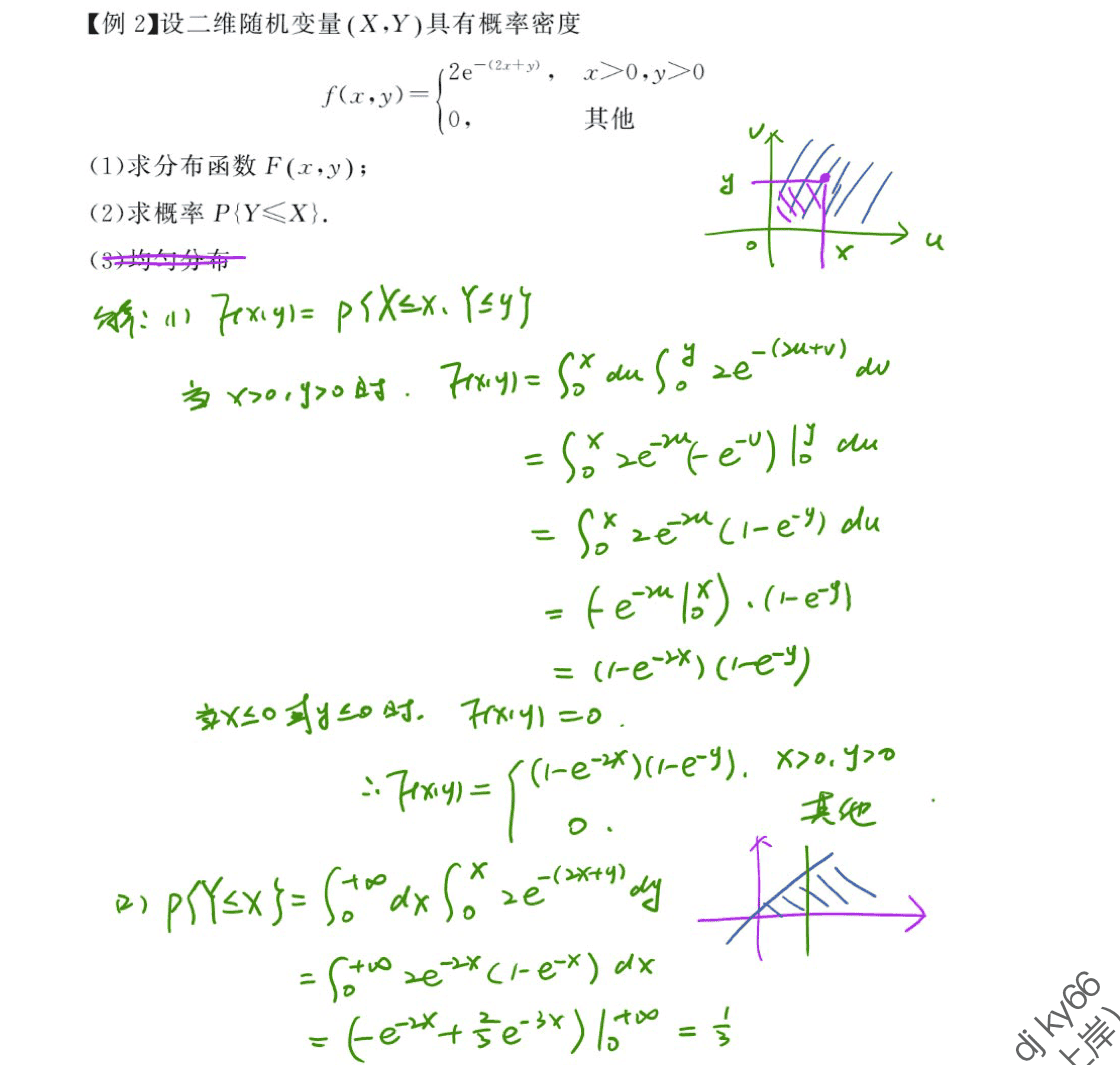 【例 2】设二维随机变量(X,Y)具有概率密度
f(x,y)={2e^{-(2x+y)}, x>0,y>0
0, 其他
(1)求分布函数 F(x,y);
(2)求概率 P{Y≤X}.
(3)均匀分布
v
y
0 x u
解:(1) F(x,y)= P{X≤x、Y≤y}
当 x>0,y>0时. F(x,y)=∫_0^x du ∫_0^y 2e^{-(2u+v)} dv
=∫_0^x 2e^{-2u}(-e^{-v})|_0^y du
=∫_0^x 2e^{-2u}(1-e^{-y}) du
=(-e^{-2u}|_0^x)·(1-e^{-y})
=(1-e^{-2x})(1-e^{-y})
当x≤0或y≤0时. F(x,y)=0.
∴F(x,y)={(1-e^{-2x})(1-e^{-y}). x>0,y>0
0. 其他
(2) P{Y≤X}=∫_0^{+∞} dx ∫_0^x 2e^{-(2x+y)} dy
=∫_0^{+∞} 2e^{-2x}(1-e^{-x}) dx
=(-e^{-2x}+\frac{2}{3}e^{-3x})|_0^{+∞} = \frac{1}{3}
dj ky66
上岸)